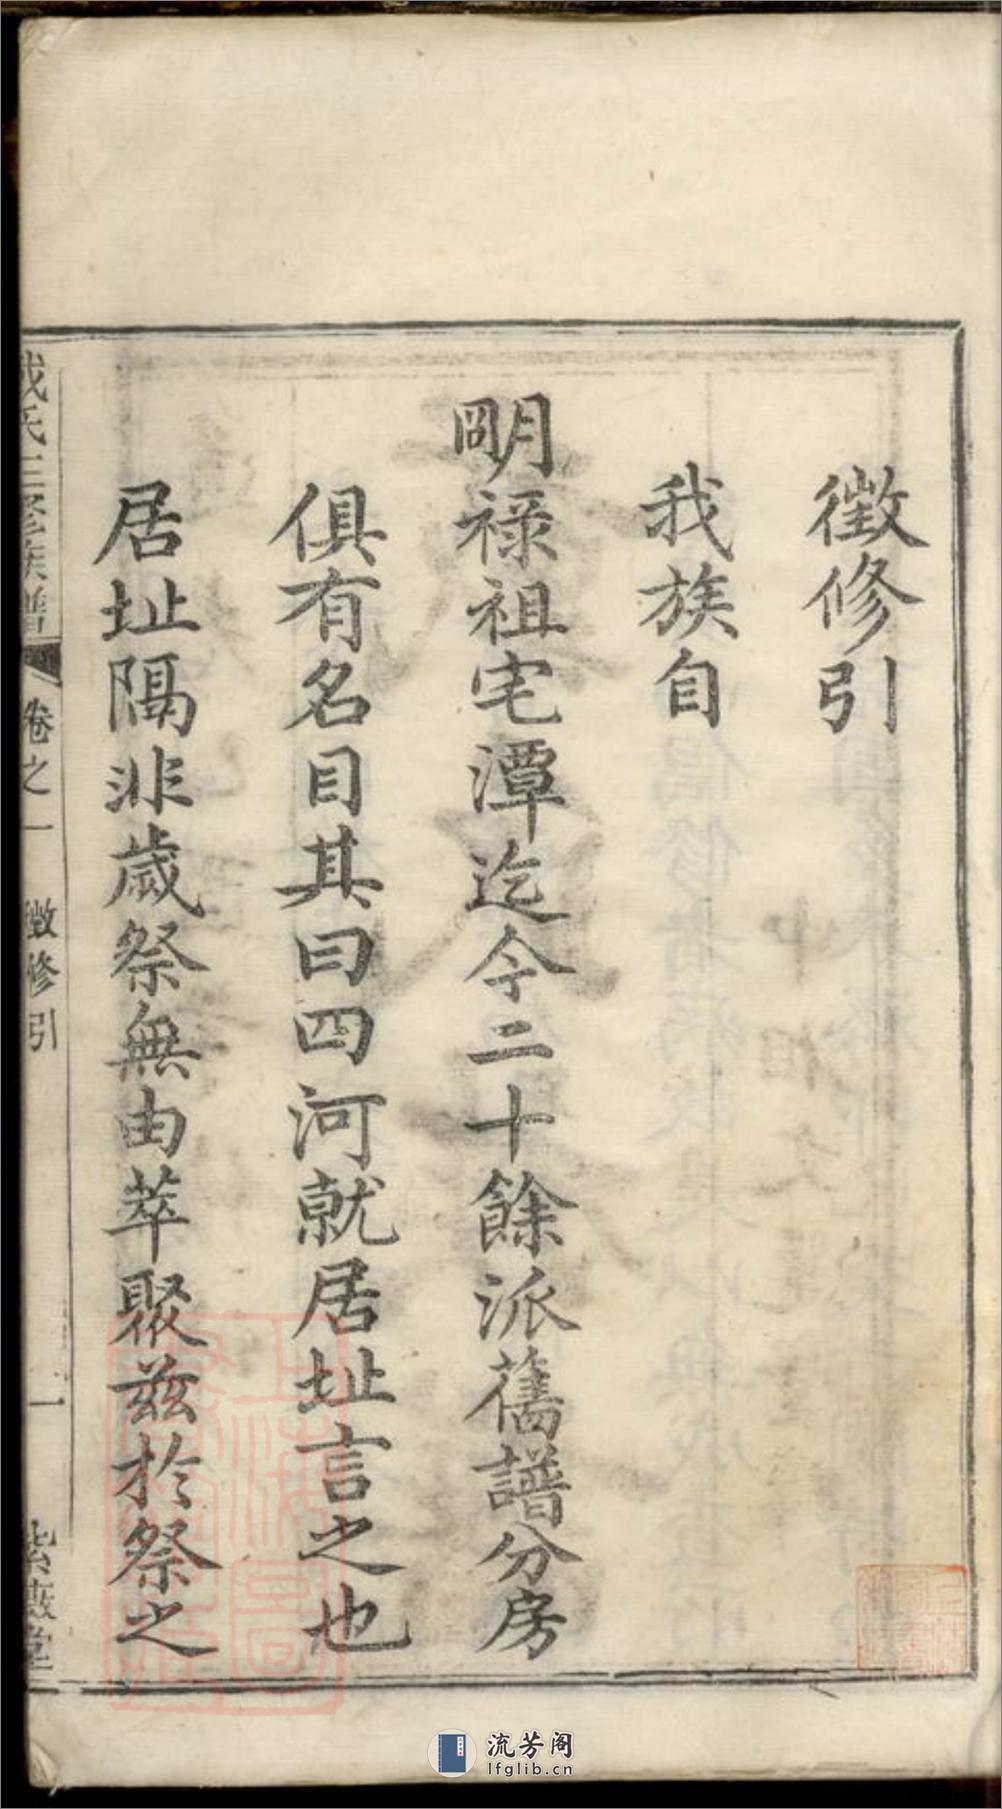 徵修引
我族自
明祿祖宅潭迄今二十餘派舊譜分房
俱有名目其曰四河就居址言之也
居址隔非歲祭無由萃聚茲於祭之
氏三修族譜 卷之一 徵修引 一 紫薇堂
流芳阁
lfglib.cn